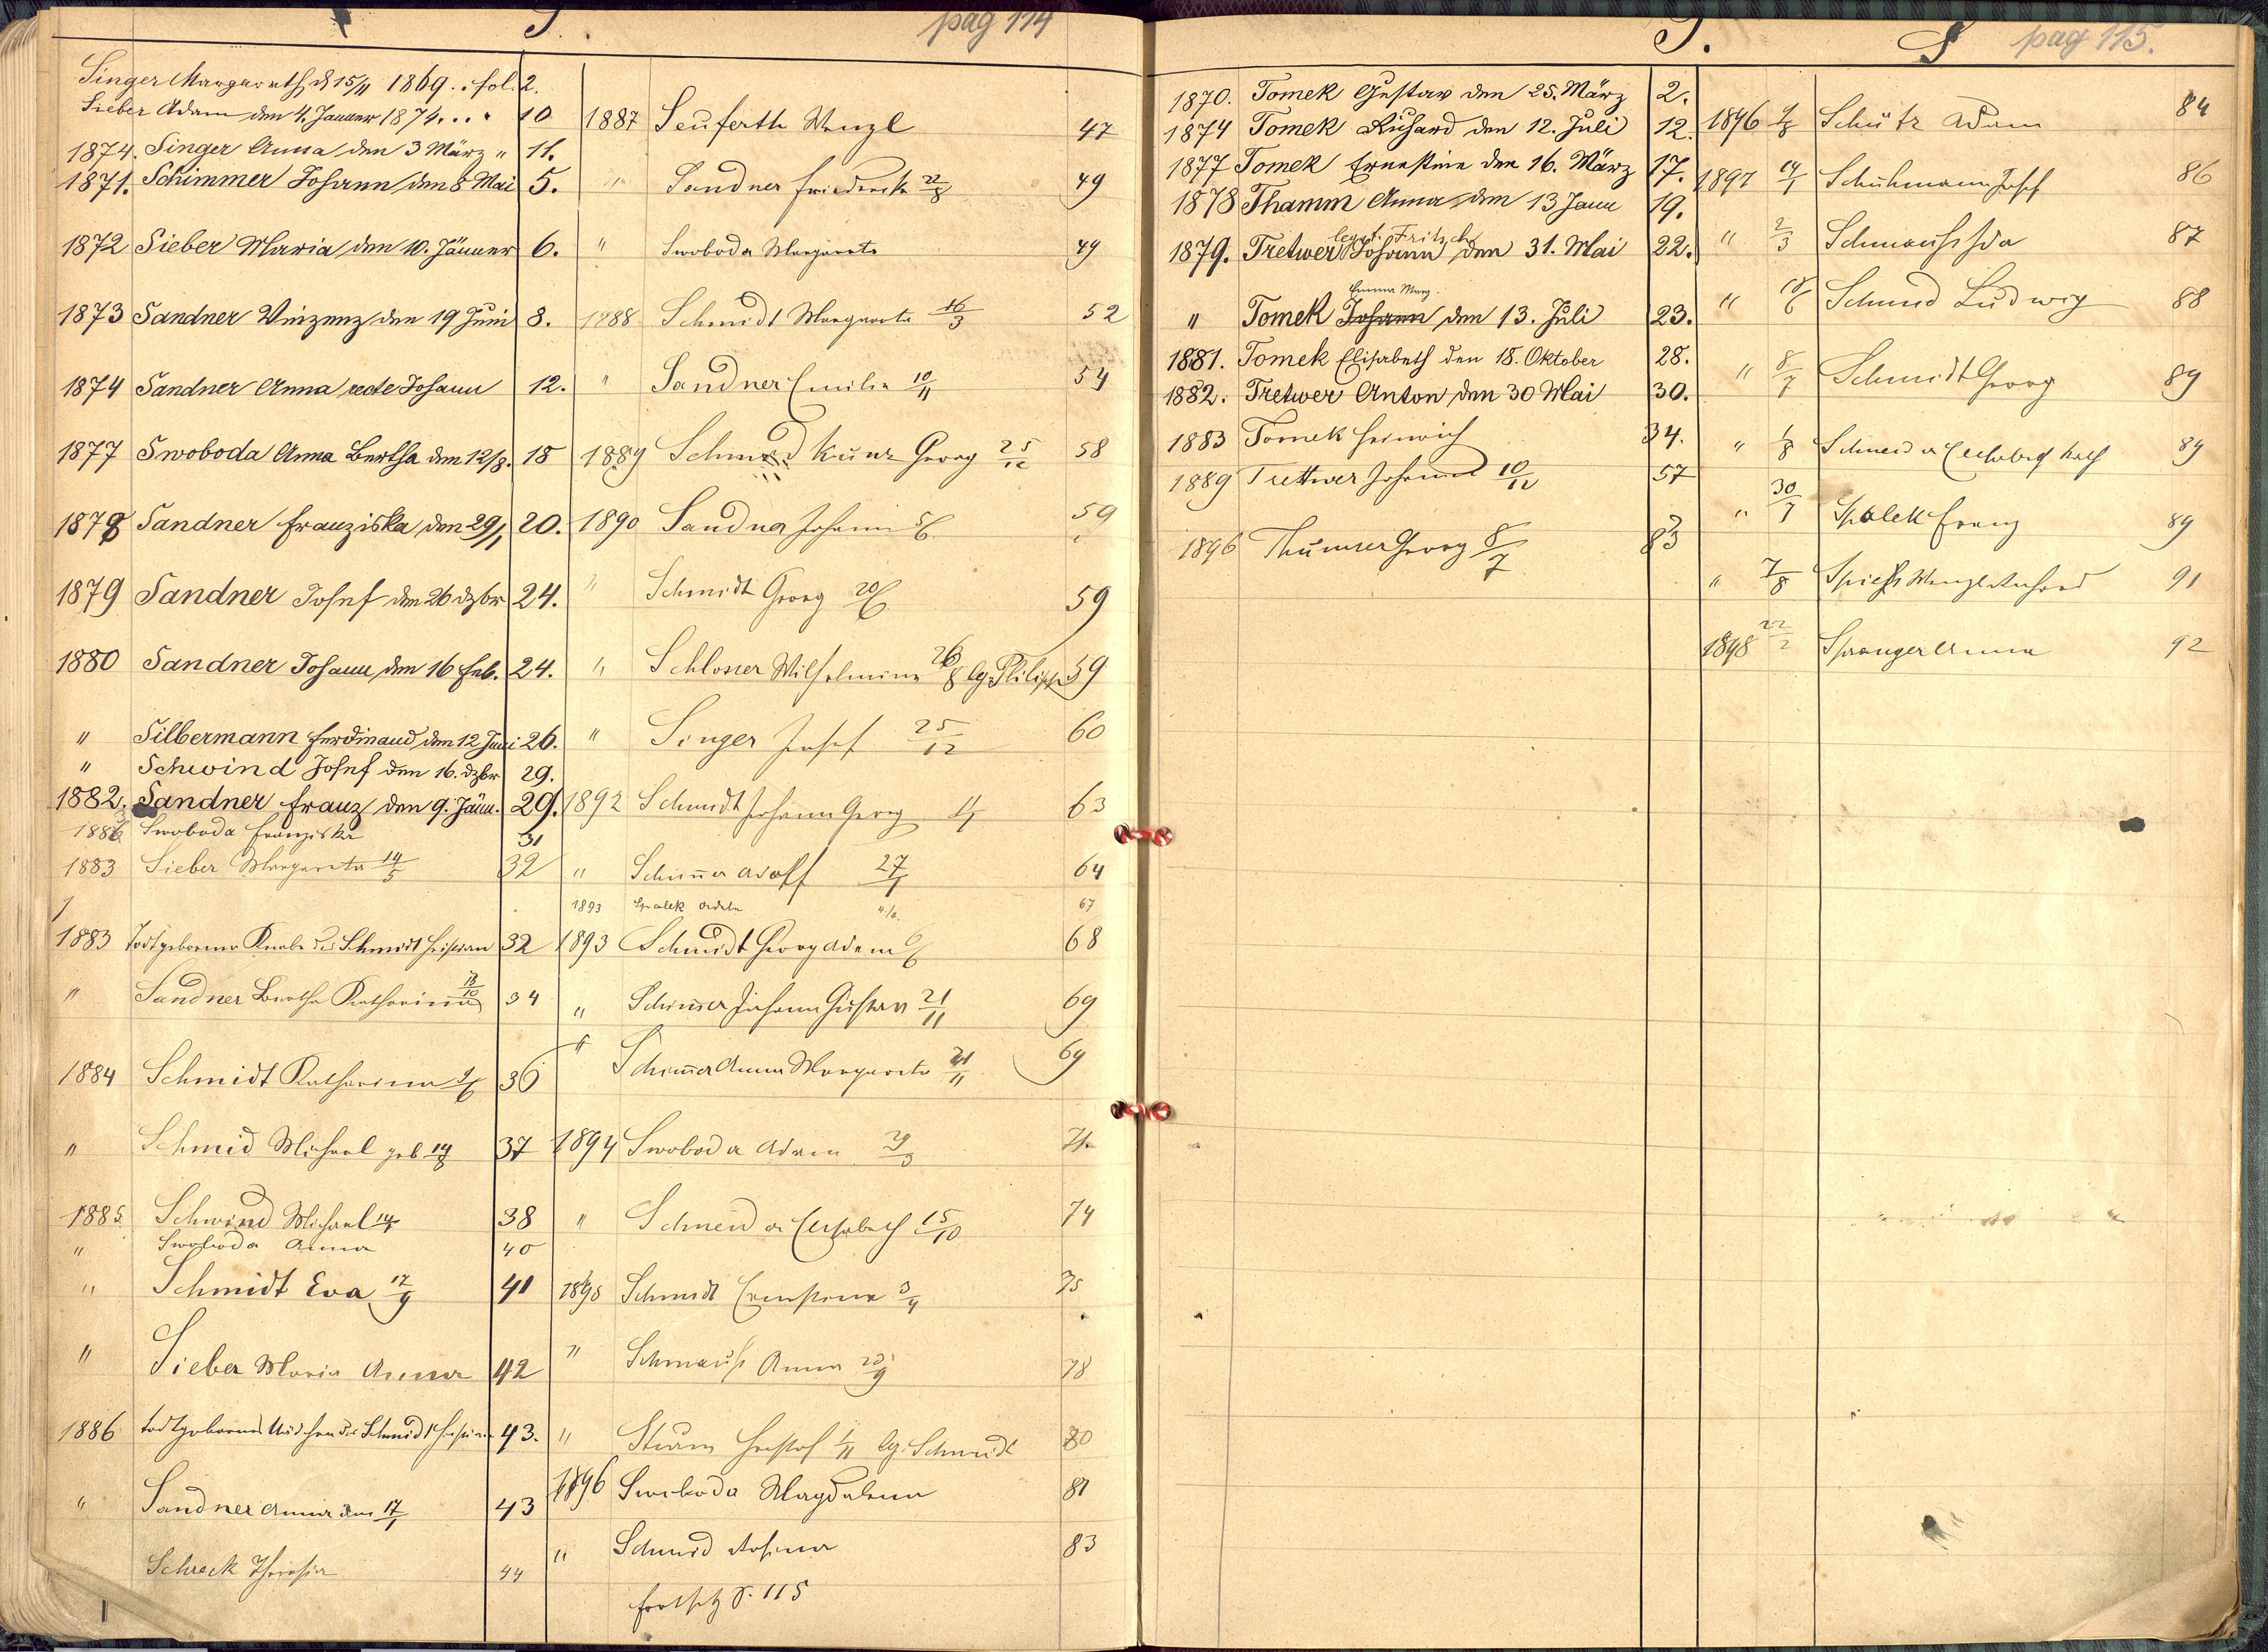 S. pag 114
Singer Margareth d 15/11 1869 . . fol. 2.
Sieber Adam den 4. Jänner 1874 . . . 10
1874. Singer Anna den 3 März " 11.
1871. Schimmer Johann den 8 Mai 5.
1872 Sieber Maria den 10. Jänner 6.
1873 Sandner Vinzenz den 19 Juni 8.
1874 Sandner Anna recte Johann 12.
1877 Swoboda Anna Bertha den 12/8. 18
1879 Sandner Franziska den 29/1 20.
1879 Sandner Josef den 26 dzbr 24.
1880 Sandner Johann den 16 Feb. 24.
" Silbermann Ferdinand den 12 Juni 26.
" Schwind Josef den 16. dzbr 29.
1882. Sandner Franz den 9. Jänn. 29.
Swoboda Franziska 31
1883 Sieber Margareta 14/5 32
1883 Todtgeborener Knabe des Schmidt Christian 32
" Sandner Bertha Katharina 18/10 34
1884 Schmidt Katharina 36
" Schmid Michael geb 37
1885 Schwind Michael 38
" Swoboda Anna 40
" Schmidt Eva 17/9 41
" Sieber Maria Anna 42
1886 todtgeborenes Mädchen des Schmidt 43.
" Sandner Anna den 17/1 43
Schreck Theresia 44
1887 Seuferth Wenzl 47
" Sandner Friedericke 22/8 49
" Swoboda Margareta 49
1888 Schmidt Margareta 16/3 52
" Sandner Emilia 10/11 54
1889 Schmid Kunz Georg 25/12 58
1890 Sandner Johann 5/6 59
" Schmidt Georg 20/6 59
" Schlosser Wilhelmine 26/8 lg. Philipp 59
" Singer Josef 25/12 60
1892 Schmidt Johann Georg 63
" Schim̄er Adolf 27/1 64
1893 Spalek Adele 67
1893 Schmidt Georg Adam 68
" Schim̄er Johann Gustav 21/11 69
" Schim̄er Anna Margareta 21/11 69
1894 Swoboda Adam 71
" Schneider Elisabeth 15/10 74
1895 Schmidt Ernestine 3/4 75
" Schmauß Anna 78
" Sturm Christof 1/11 lg. Schmidt 80
1896 Swoboda Magdalena 81
" Schmid Rosina 83
Fortsetz S. 115
T. S pag 115.
1870. Tomek Gustav den 25. März 2.
1874 Tomek Richard den 12. Juli 12.
1877 Tomek Ernestine den 16. März 17.
1878 Thamm Anna den 13 Jann 19.
legit. Fritsch
1879. Tretwer Johann den 31. Mai 22.
Emma Marg.
" Tomek Johann den 13. Juli 23.
1881. Tomek Elisabeth den 18. Oktober 28.
1882. Tretwer Anton den 30 Mai 30.
1883 Tomek Heinrich 34.
1889 Trettwer Johann 10/12 57
1896 Thumser Georg 8/7 83
1896 Schütz Adam 84
1897 Schuhmann Josef 86
" 2/3 Schmauß Ida 87
" Schmid Ludwig 88
" 8/7 Schmidt Georg 89
" 1/8 Schneider Elisabeth Kath 89
" 30/7 Spalek Franz 89
" 7/8 Spieß Wenzl Richard 91
1898 22/2 Spranger Anna 92